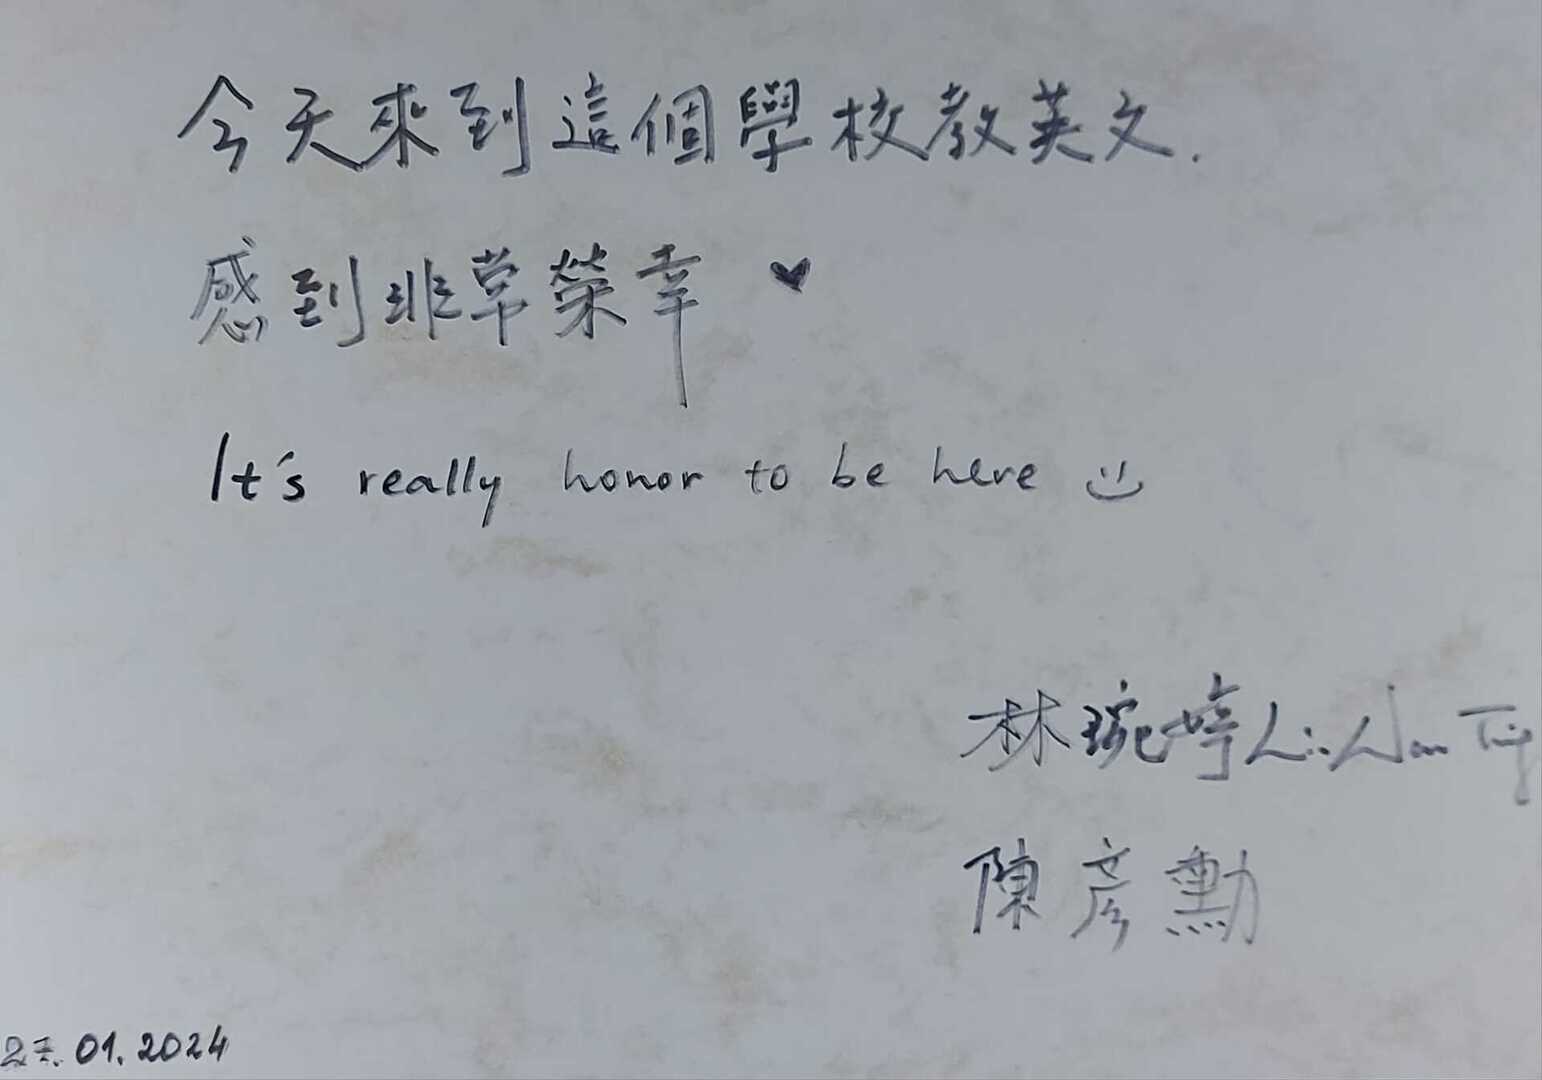 今天來到這個學校教英文.
感到非常榮幸 ♥
It's really honor to be here
林琬婷 Lin Wan Ting
陳彥勳
27.01.2024